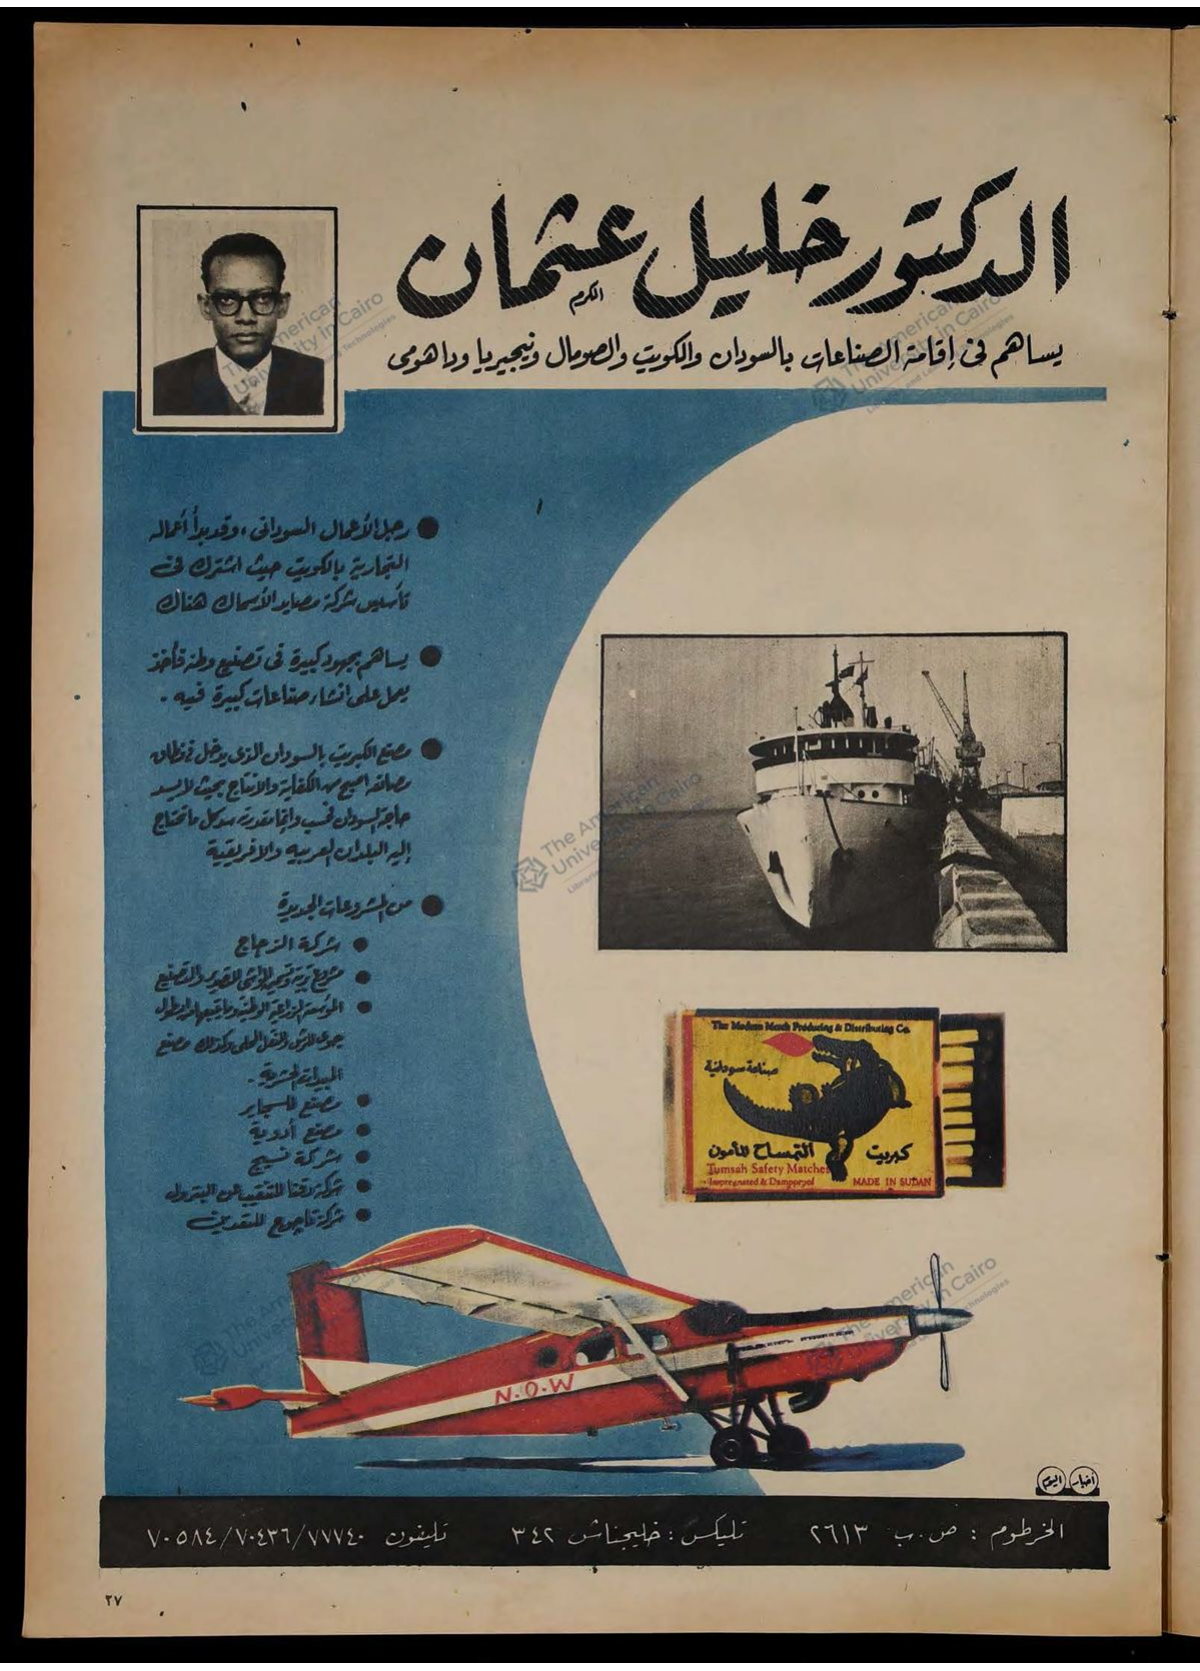 الدكتور خليل عثمان
الكرم
يساهم في إقامة الصناعات بالسودان والكويت والصومال ونيجيريا وداهومى
رجل الأعمال السوداني ، وقد بدأ أعماله
التجارية بالكويت حيث اشترك في
تأسيس شركة مصايد الأسماك هناك
يساهم بجهود كبيرة في تصنيع وطنه فأخذ
يعمل على انشاء صناعات كبيرة فيه .
مصنع الكبريت بالسودان الذى يدخل في نطاق
مصانعه اصبح من الكفاية والانتاج بحيث لا يسد
حاجة السودان فحسب وانما مقدرته سد كل ما تحتاج
إليه البلدان العربيه والافريقية
من المشروعات الجديدة
شركة الزجاج
مشروع تربية وتسمين المواشى للتصدير والتصنيع
المؤسسة الزراعية الوطنية
جوى للرش والنقل المحلى وكذلك مصنع
المبيدات الحشرية .
مصنع للسجاير
مصنع أدوية
شركة نسيج
للتنقيب عن البترول
شركة للتعدين
The Modern Match Producing & Distributing Co.
صناعة سودانية
كبريت التمساح المأمون
Tumsah Safety Matches
Impregnated & Dampproof MADE IN SUDAN
N.O.W
أخبار اليوم
الخرطوم : ص . ب ٢٦١٣ تليكس : خليجناش ٣٤٢ تليفون ٧٠٥٨٤/٧٠٤٣٦/٧٧٧٤٠
٢٧
The American
University in Cairo
Libraries and Learning Technologies